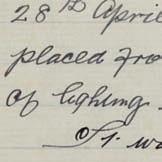 28th April
placed fro
of lighting
It w